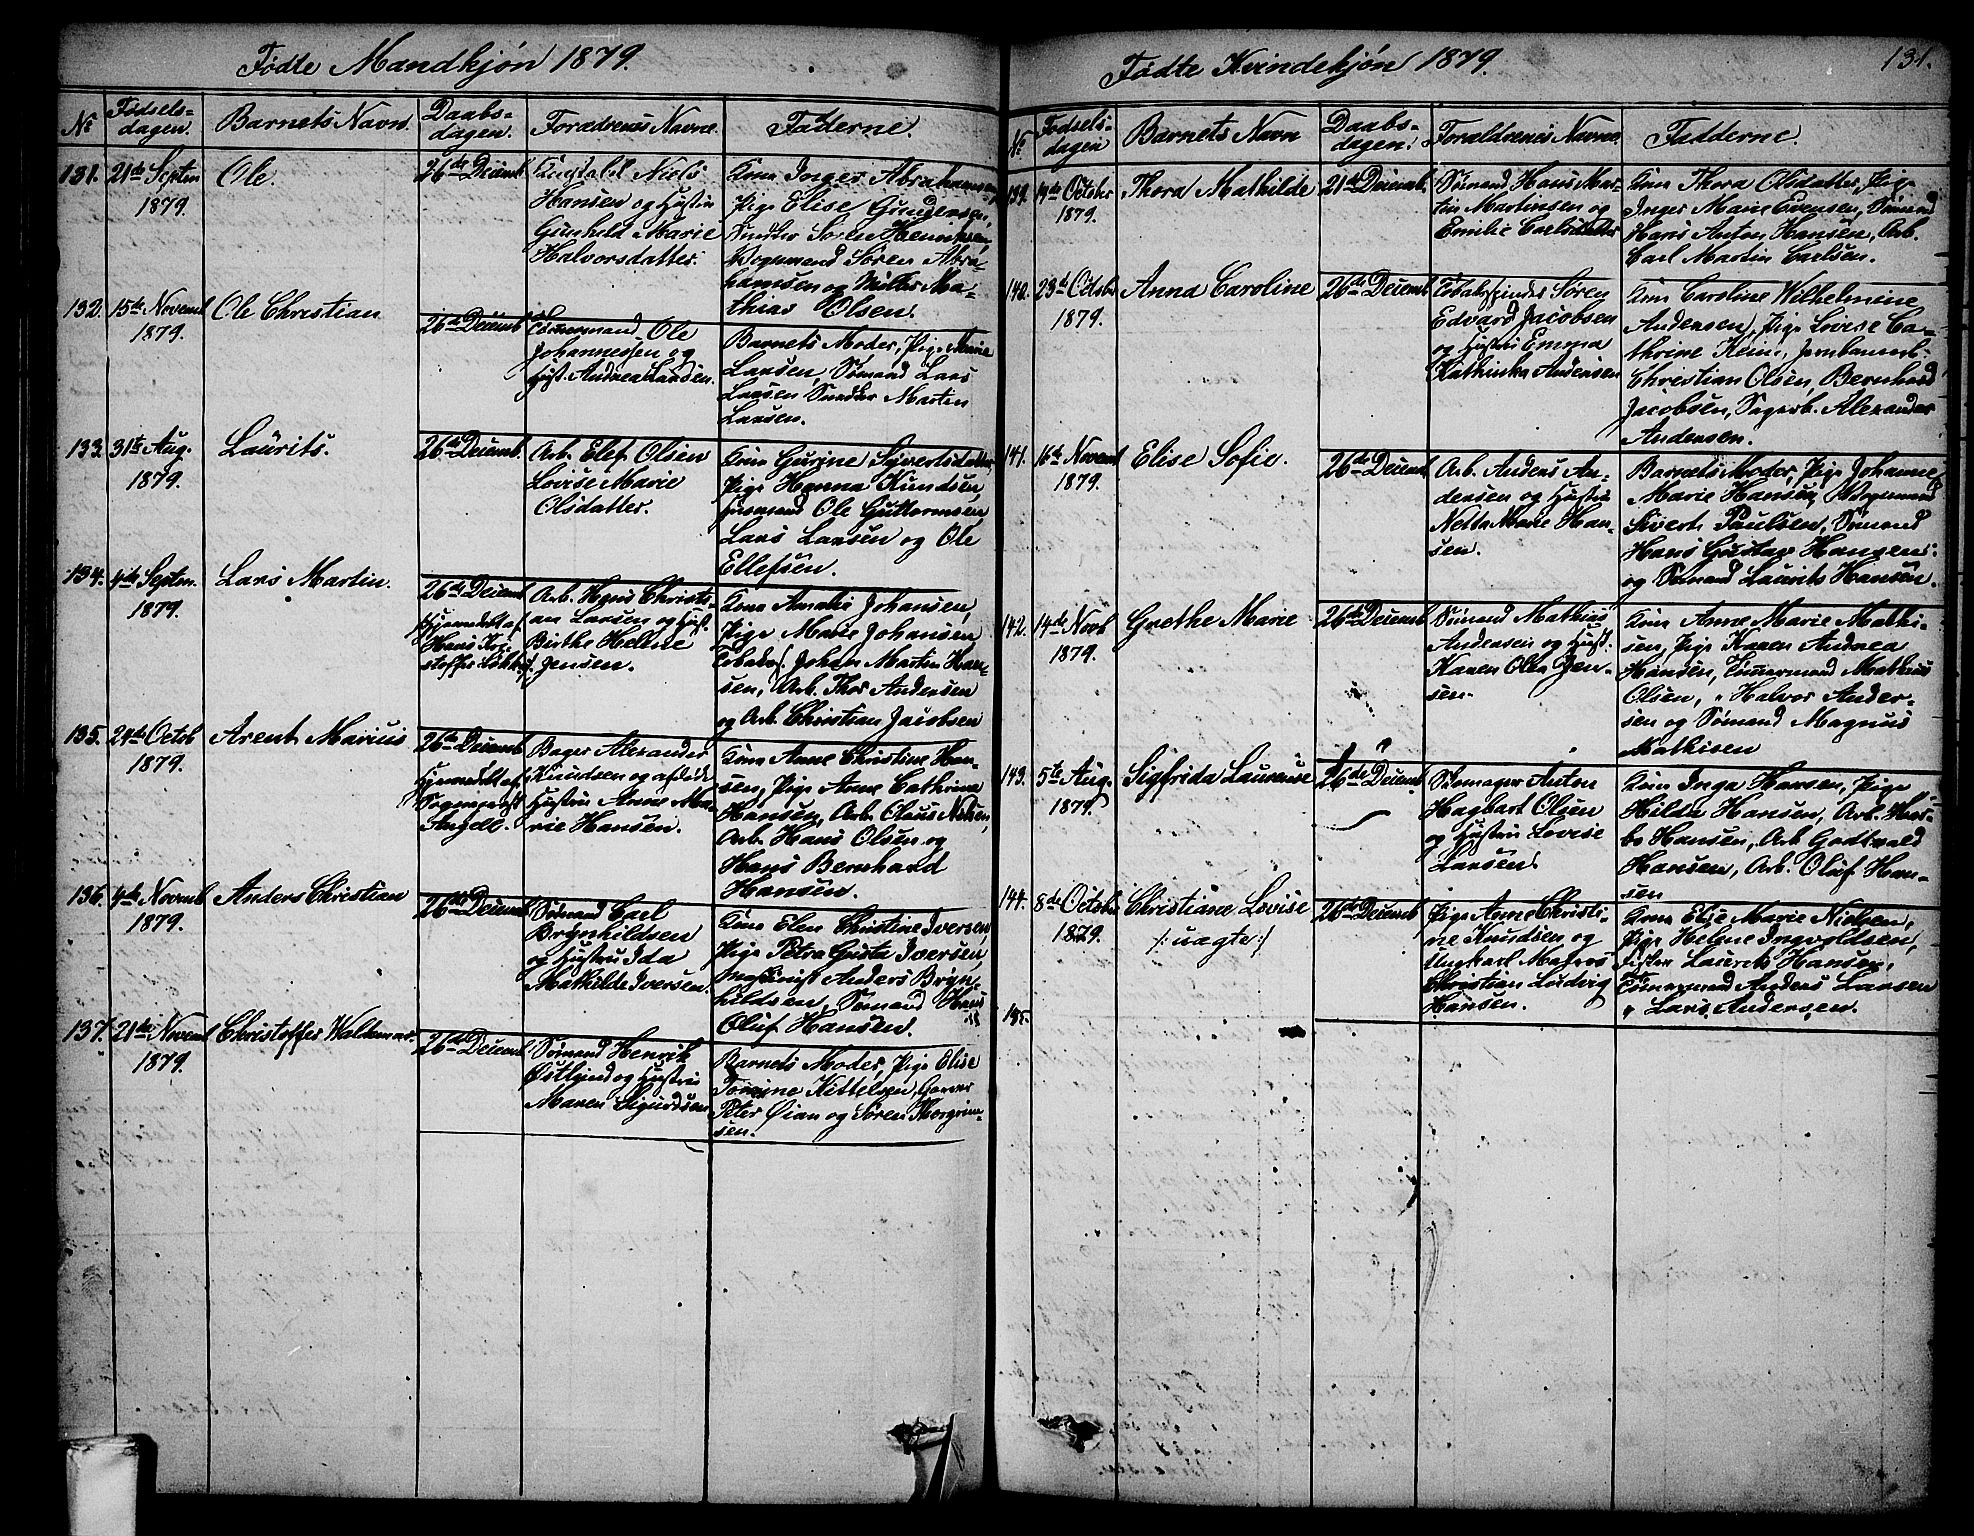 Fødte Mandkjøn 1879.
No
Fødsels-
dagen.
Barnets Navn.
Daabs-
dagen.
Forældrenes Navne.
Fadderne.
131.
21de Septm
1879.
Ole.
26de Decemb.
Niels
Hansen og Hustru
Gunhild Marie
Halvorsdatter.
Kone Inger Abrahamsen,
Pige Elise Gundersen,
Snedker Søren Henriksen,
Vognmand Søren Abra-
hamsen og Ma-
thias Olsen.
132.
15de Novemb
1879.
Ole Christian
26de Decemb
Tømmermand Ole
Johannessen og
Hust. Andrea Larsen.
Barnets Moder, Pige Marie
Larsen, Sømand Lars
Larsen Snedker Martin
Larsen.
133.
31te Aug.
1879.
Laurits.
26de Decemb.
Arb. Elef Olsen
Lovise Marie
Olsdatter.
Kone Gurine Syvertsdatter
Pige Hanna Knudsen,
Husmand Ole Guttormsen
Lars Larsen og Ole
Ellefsen.
134.
4de Septm.
1879.
Lars Martin.
26de Decemb
Hjemmedøbt af
Hans Kri-
stoffer
Arb. Hans Christi-
an Larsen og Hust.
Birthe Helene
Jensen.
Kone Amalie Johansen,
Pige Marie Johansen
Johan Martin Han-
sen, Arb. Thor Andersen
og Arb. Christian Jacobsen
135.
24de Octob
1879.
Arent Marius
26de Decemb
Hjemmedøbt af
Sogneprest
Angell.
Bager Alexander
Knudsen og afdøde
Hustru Anne Ma-
rie Hansen.
Kone Anne Christine Han-
sen, Pige Anne Cathrine
Hansen, Arb. Olaus Nilsen,
Arb. Hans Olsen og
Hans Bernhard
Hansen.
136.
4de Novemb
1879.
Anders Christian
26de Decemb
Sømand Carl
Brynhildsen
og Hustru Ida
Mathilde Iversen.
Kone Elen Christine Iversen,
Pige Petra Gusta Iversen,
Anders Bryn-
hildsen, Sømand Hans
Oluf Hansen.
137.
21de Novemb
1879.
Christoffer Waldemar.
26de Decemb
Sømand Henrik
Østlund og Hustru
Maren Sigurdsen
Barnets Moder, Pige Elise
Torine Kittelsen, Garver
Peter Øian og Søren Thorgrim-
sen.
Fødte Kvindekjøn 1879.
131.
No
Fødsels-
dagen
Barnets Navn
Daabs-
dagen.
Forældrenes Navne.
Fadderne.
139.
19de October
1879.
Thora Mathilde
21de Decemb.
Sømand Hans Mar-
tin Martinsen og
Emilie Carlsdatter
Kone Thora Olsdatter, Pige
Inger Marie Evensen, Sømand
Hans Anton Hansen, Arb.
Carl Martin Carlsen.
140.
23de Octob
1879.
Anna Caroline
26de Decemb
Søren
Edvard Jacobsen
og Hustru Emma
Kathinka Andersen
Kone Caroline Wilhelmine
Andersen, Pige Lovise Ca-
thrine Keim, Jernbanearb.
Christian Olsen, Bernhard
Jacobsen, Sagarb. Alexander
Andersen.
141.
16de Novemb
1879.
Elise Sofie.
26de Decemb
Arb. Anders An-
dersen og Hustru
Netta Marie Han-
sen.
Barnets Moder, Pige Johanne
Marie Hansen, Vognmand
Sivert Paulsen, Sømand
Hans Gustav Hansen
og Sømand Laurits Hansen.
142.
14de Novb
1879.
Grethe Marie
26de Decemb
Sømand Mathias
Andersen og Hust.
Karen Olea Jen-
sen.
Kone Anne Marie Mathi-
sen, Pige Karen Andrea
Hansen, Tømmermand Mathias
Olsen, " Halvor Ander-
sen og Sømand Magnus
Mathisen
143.
5te Aug.
1879.
Sigfrida Laurense
26de Decemb
Skomager Anton
Hagbart Olsen
og Hustru Lovise
Larsen.
Kone Inga Hansen, Pige
Hilda Hansen, Arb. Has-
bo Hansen, Arb Godtvald
Hansen, Arb. Oluf Han-
sen
144.
8de October
1879.
Christiane Lovise
/: uægte :/
26de Decemb
Pige Anne Christi-
ne Knudsen og
Ungkarl Matros
Christian Ludvig
Hansen.
Kone Elise Marie Nielsen,
Pige Helene Ingvoldsen,
Fisker Laurits Hansen,
Tømmermand Anders Larsen
" Lars Andersen.
135.